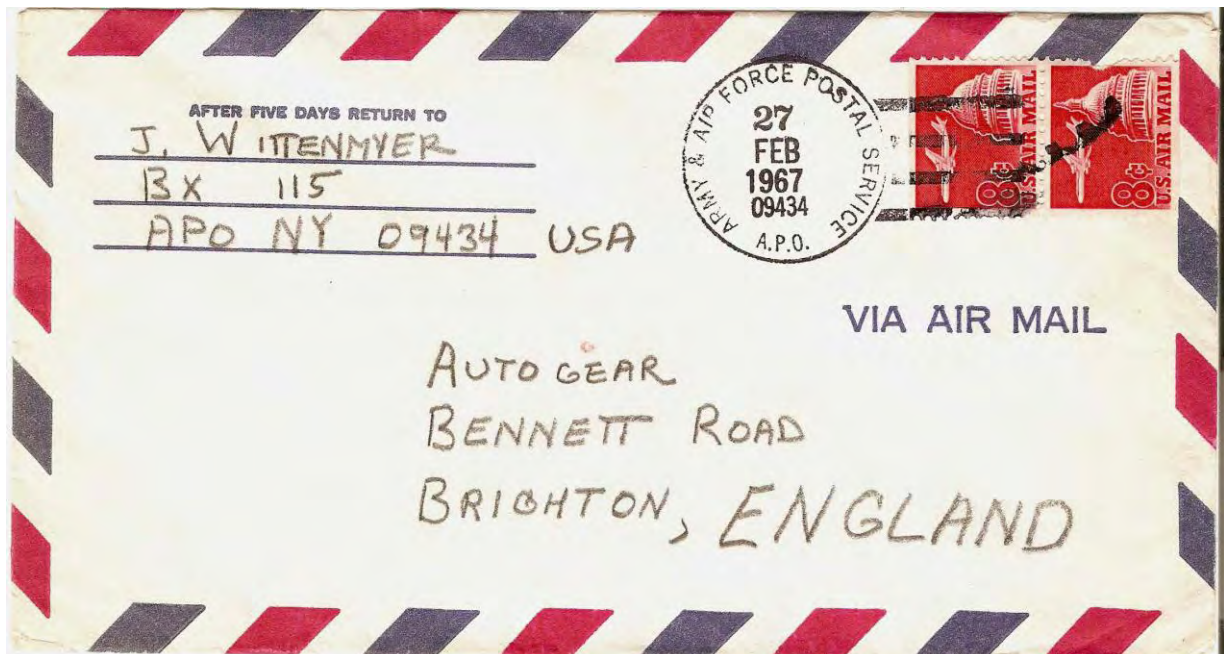 AFTER FIVE DAYS RETURN TO
J. WITTENMYER
BX 115
APO NY 09434 USA
ARMY & AIR FORCE POSTAL SERVICE
27
FEB
1967
09434
A.P.O.
8¢
U.S. AIR MAIL
8¢
U.S. AIR MAIL
VIA AIR MAIL
AUTO GEAR
BENNETT ROAD
BRIGHTON, ENGLAND